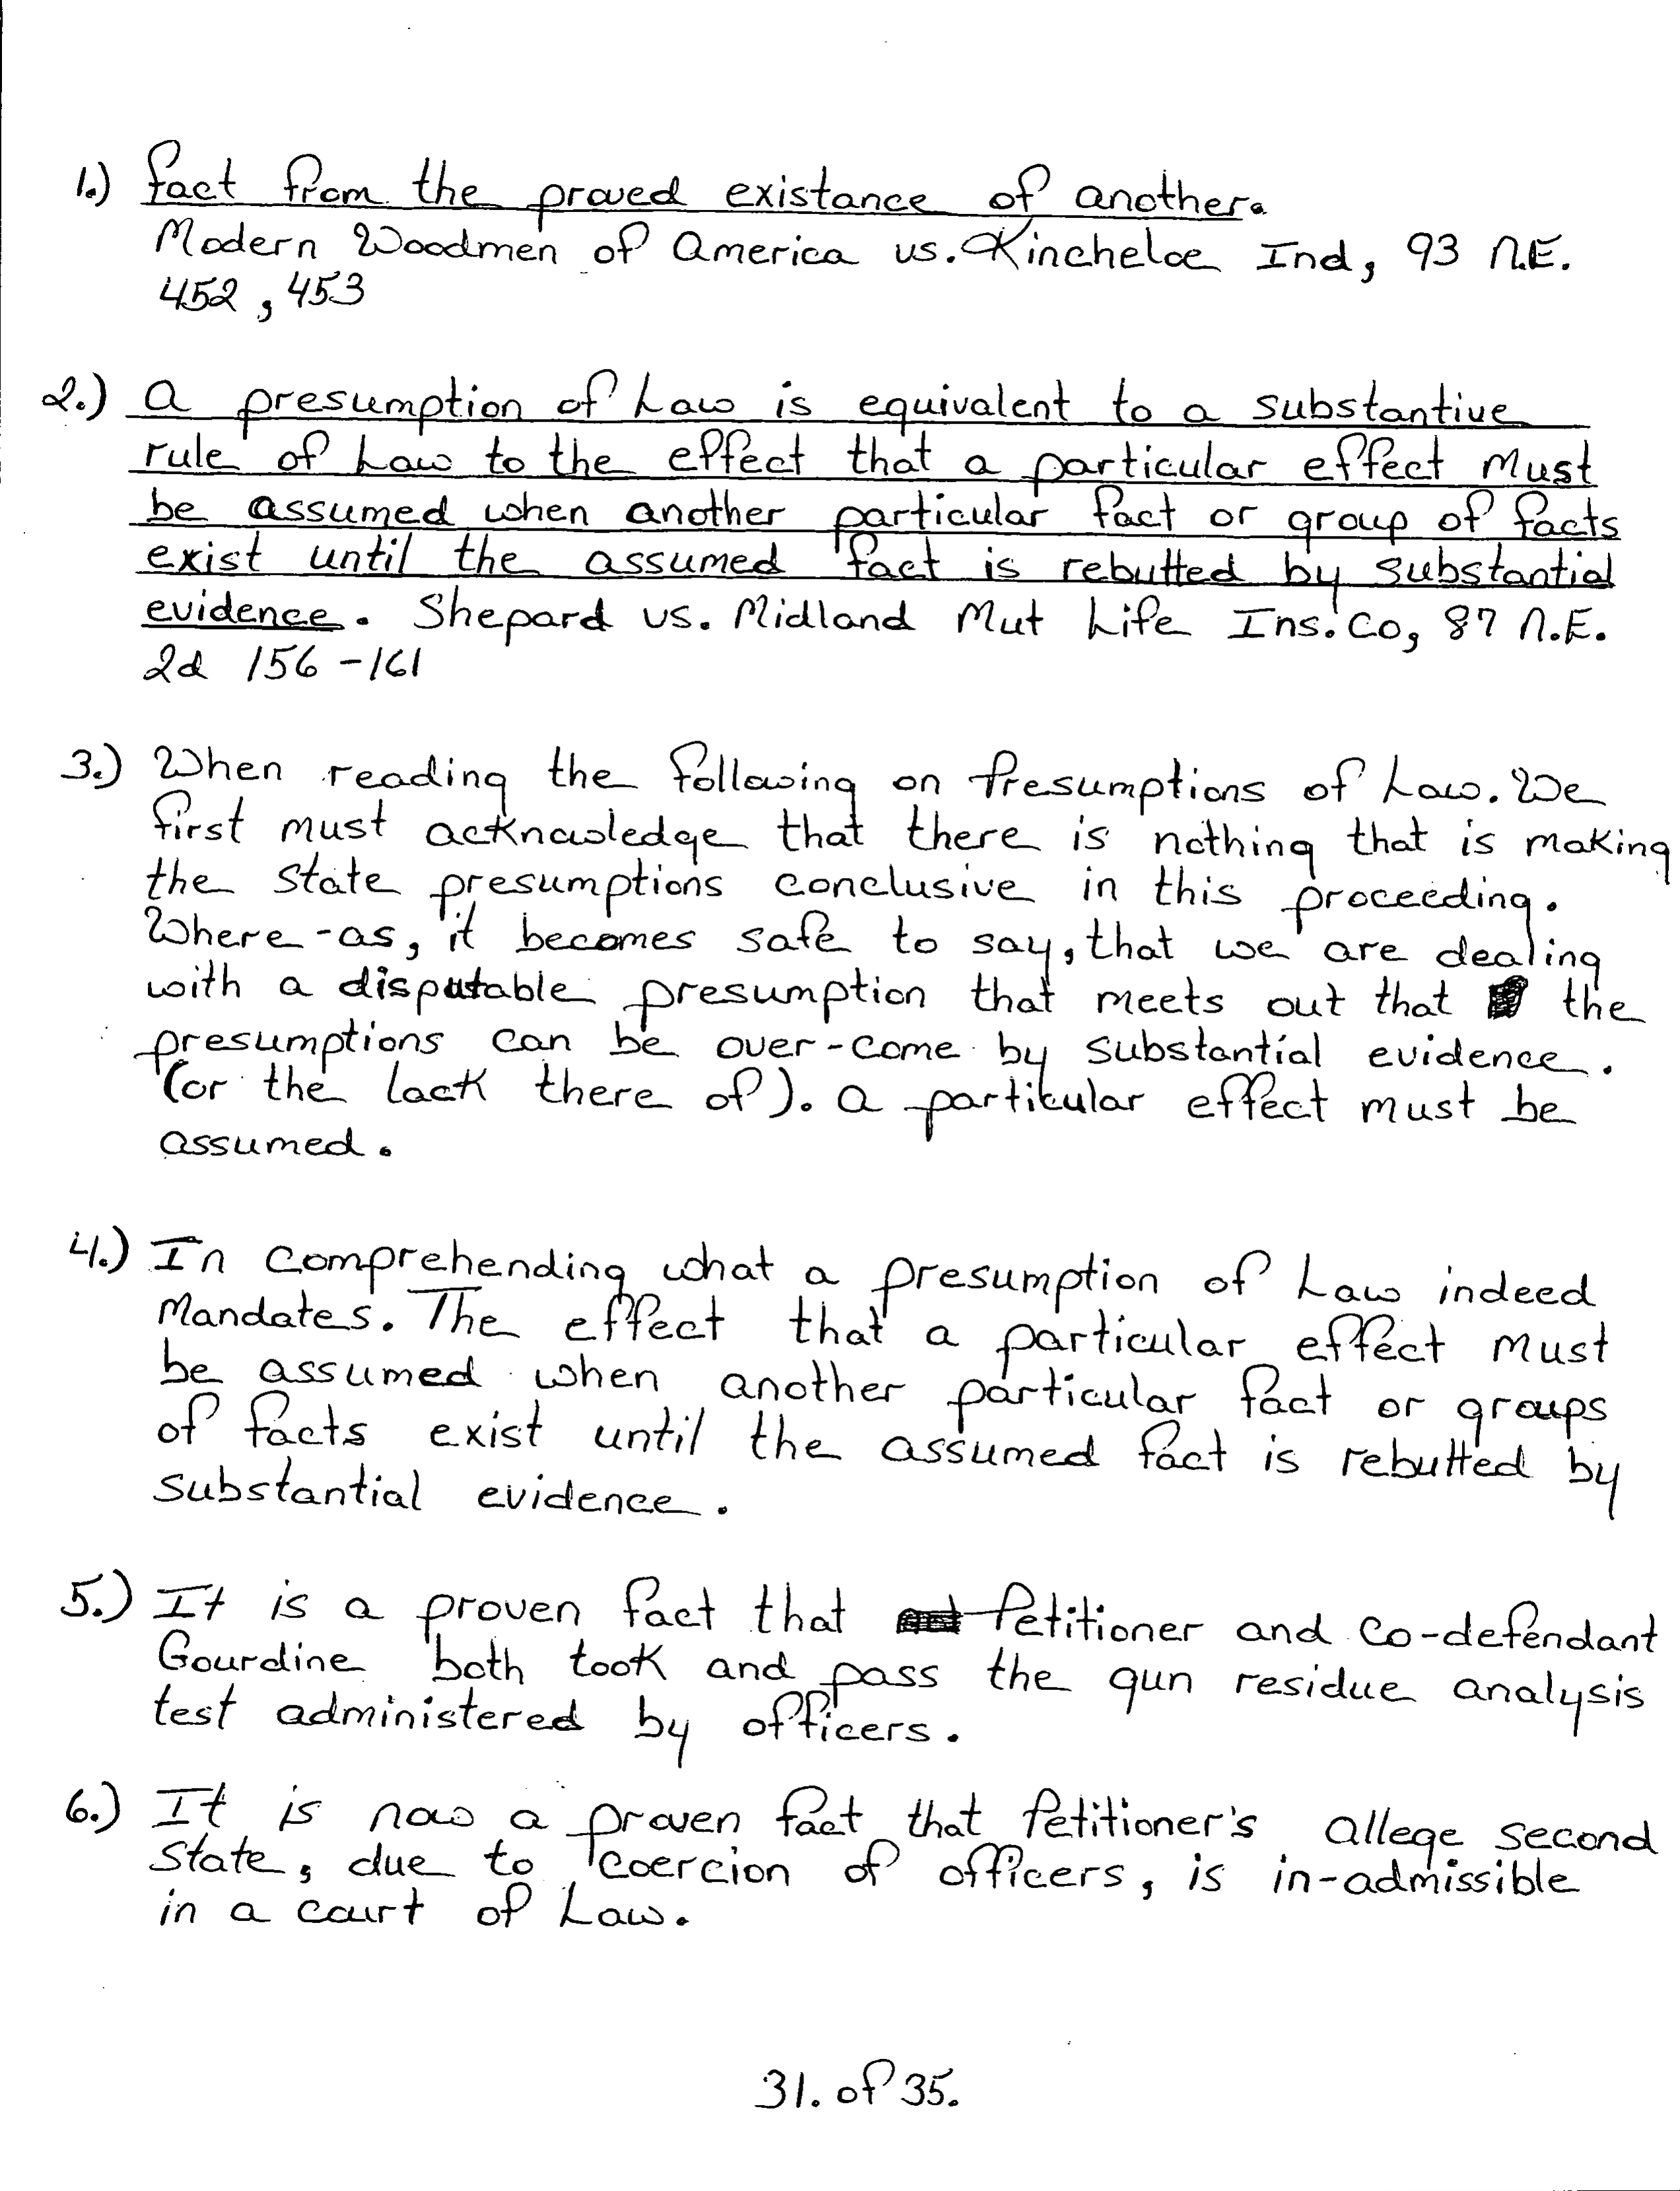 1.) fact from the proved existance of another.
Modern Woodmen of America vs. Kincheloe Ind, 93 N.E.
452, 453
2.) A presumption of Law is equivalent to a substantive
rule of Law to the effect that a particular effect Must
be assumed when another particular fact or group of facts
exist until the assumed fact is rebutted by substantial
evidence. Shepard vs. Midland Mut Life Ins. Co, 87 N.E.
2d 156-161
3.) When reading the following on Presumptions of Law. We
first must acknowledge that there is nothing that is making
the State presumptions conclusive in this proceeding.
Where-as, it becomes safe to say, that we are dealing
with a disputable presumption that meets out that the
presumptions can be over-come by substantial evidence.
(or the lack there of). A particular effect must be
assumed.
4.) In comprehending what a presumption of Law indeed
Mandates. The effect that a particular effect Must
be assumed when another particular fact or groups
of facts exist until the assumed fact is rebutted by
substantial evidence.
5.) It is a proven fact that Petitioner and Co-defendant
Gourdine both took and pass the gun residue analysis
test administered by officers.
6.) It is now a proven fact that Petitioner's allege second
State, due to coercion of officers, is in-admissible
in a court of Law.
31. of 35.